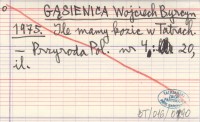 GĄSIENICA Wojciech Byrcyn
1975. Ile mamy kozic w Tatrach.
— Przyroda Pol. nr 4: 20,
il.